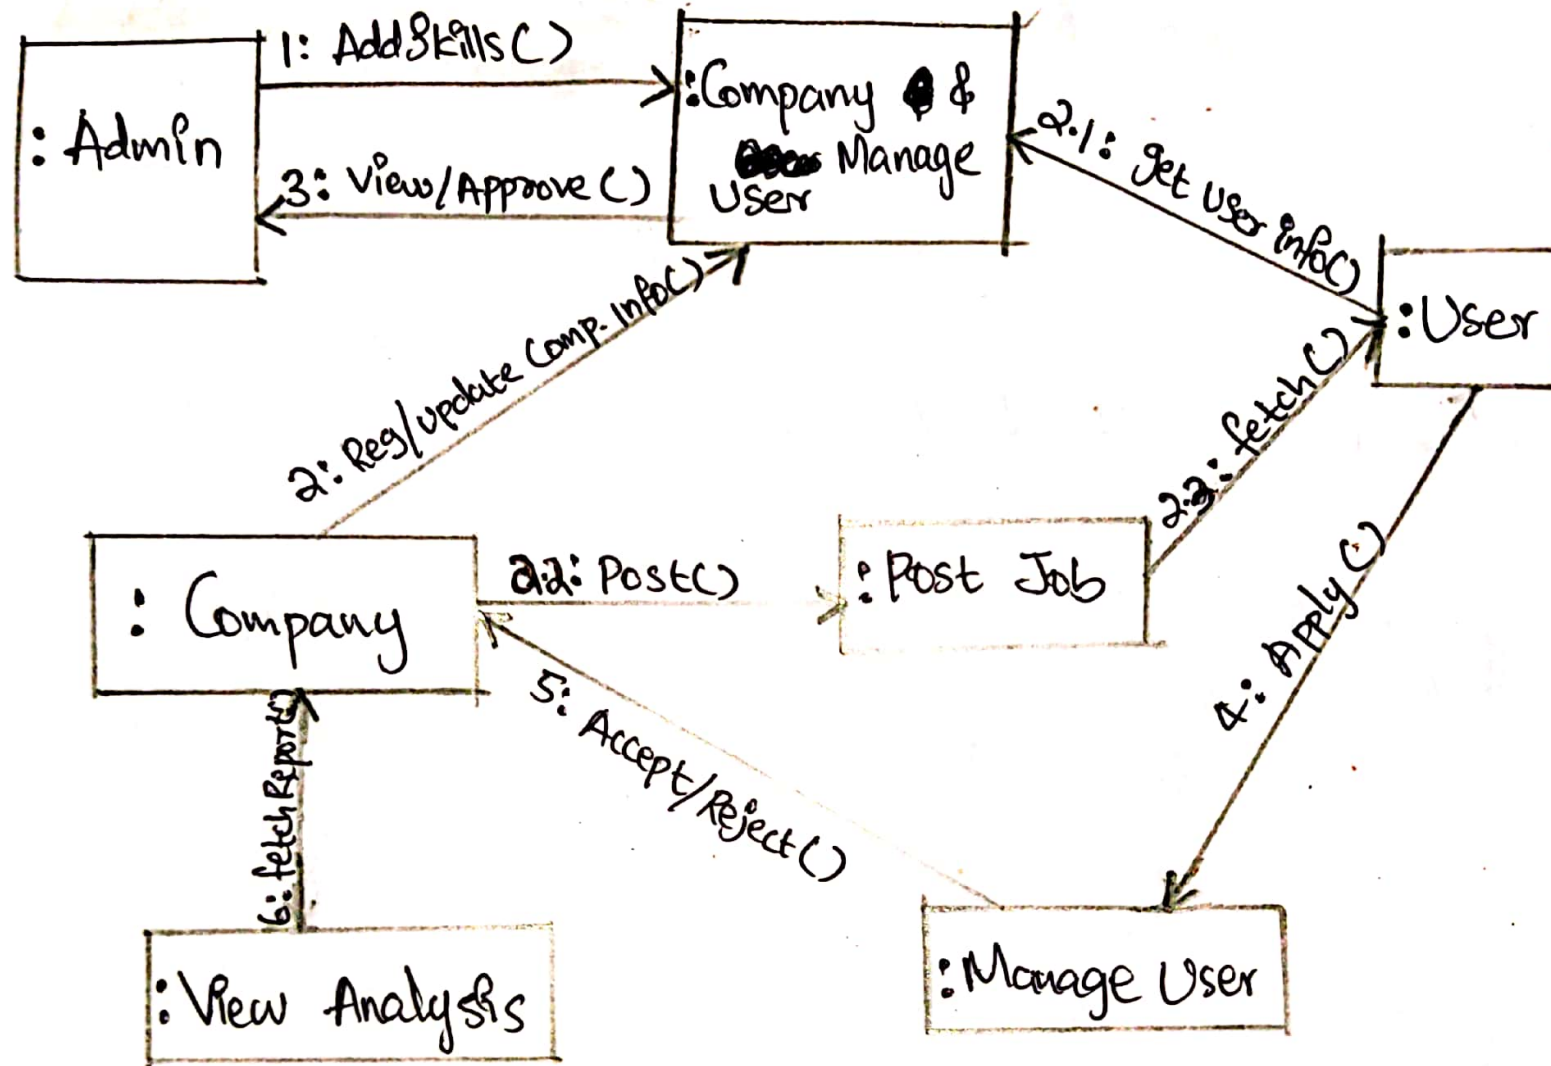 1: AddSkills()
: Admin
:Company & 
Manage
User
3: View/Approve()
2.1: get user info()
:User
2: Reg/update Comp. Info()
2.2: fetch()
: Company
2.2: Post()
:Post Job
4: Apply()
5: Accept/Reject()
6: fetchReport()
:View Analysis
:Manage User